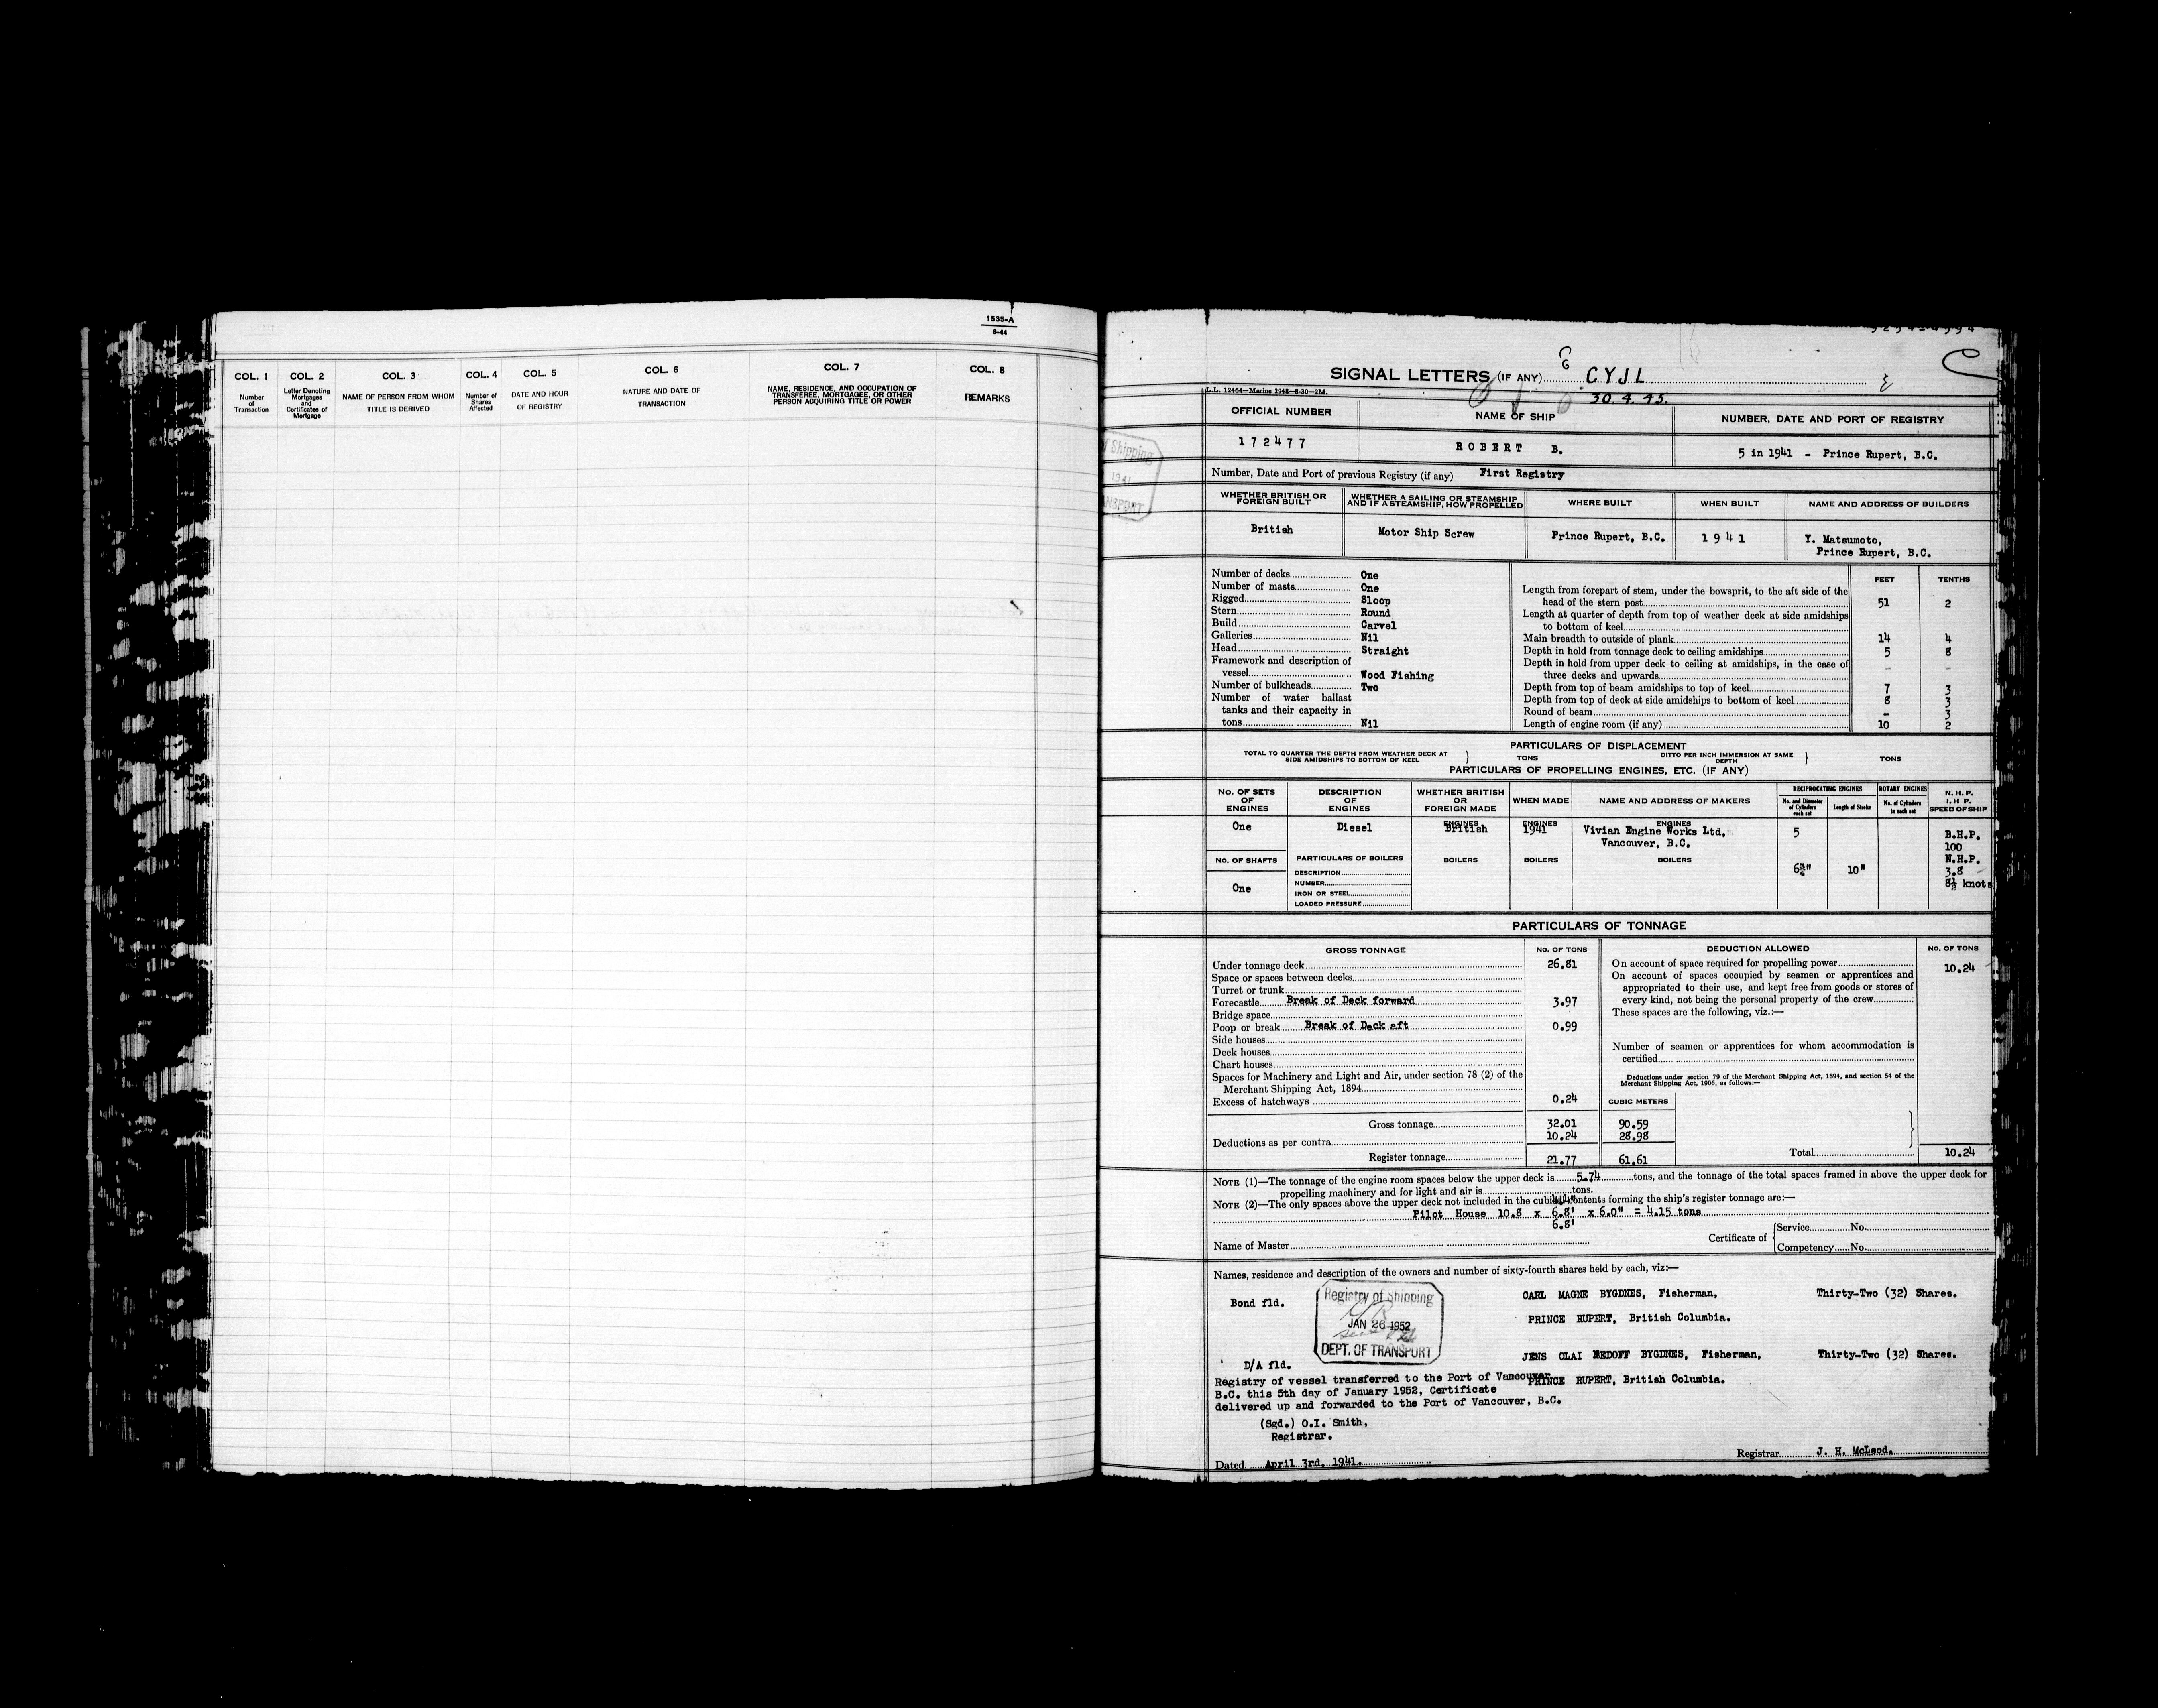 1535-A
6-44
COL. 1 COL. 2 COL. 3 COL. 4 COL. 5 COL. 6 COL. 7 COL. 8
Number of Transaction
Letter Denoting Mortgages and Certificates of Mortgage
NAME OF PERSON FROM WHOM TITLE IS DERIVED
Number of Shares Affected
DATE AND HOUR OF REGISTRY
NATURE AND DATE OF TRANSACTION
NAME, RESIDENCE, AND OCCUPATION OF TRANSFEREE, MORTGAGEE, OR OTHER PERSON ACQUIRING TITLE OR POWER
REMARKS
SIGNAL LETTERS (IF ANY) CYJL
30.4.45.
L.L. 12464—Marine 2948—8-30—2M.
OFFICIAL NUMBER NAME OF SHIP NUMBER, DATE AND PORT OF REGISTRY
172477 ROBERT B. 5 in 1941 - Prince Rupert, B.C.
Number, Date and Port of previous Registry (if any) First Registry
WHETHER BRITISH OR FOREIGN BUILT
WHETHER A SAILING OR STEAMSHIP AND IF A STEAMSHIP, HOW PROPELLED
WHERE BUILT WHEN BUILT NAME AND ADDRESS OF BUILDERS
British Motor Ship Screw Prince Rupert, B.C. 1941 Y. Matsumoto,
Prince Rupert, B.C.
Number of decks One
Number of masts One
Rigged Sloop
Stern Round
Build Carvel
Galleries Nil
Head Straight
Framework and description of
vessel Wood Fishing
Number of bulkheads Two
Number of water ballast
tanks and their capacity in
tons Nil
FEET TENTHS
Length from forepart of stem, under the bowsprit, to the aft side of the
head of the stern post 51 2
Length at quarter of depth from top of weather deck at side amidships
to bottom of keel
Main breadth to outside of plank 14 4
Depth in hold from tonnage deck to ceiling amidships 5 8
Depth in hold from upper deck to ceiling at amidships, in the case of
three decks and upwards - -
Depth from top of beam amidships to top of keel 7 3
Depth from top of deck at side amidships to bottom of keel 8 3
Round of beam - 3
Length of engine room (if any) 10 2
PARTICULARS OF DISPLACEMENT
TOTAL TO QUARTER THE DEPTH FROM WEATHER DECK AT SIDE AMIDSHIPS TO BOTTOM OF KEEL } TONS
DITTO PER INCH IMMERSION AT SAME DEPTH } TONS
PARTICULARS OF PROPELLING ENGINES, ETC. (IF ANY)
No. OF SETS OF ENGINES
DESCRIPTION OF ENGINES
WHETHER BRITISH OR FOREIGN MADE
WHEN MADE
NAME AND ADDRESS OF MAKERS
RECIPROCATING ENGINES
No. and Diameter of Cylinders each set
Length of Stroke
ROTARY ENGINES
No. of Cylinders in each set
N.H.P.
I.H.P.
SPEED OF SHIP
ENGINES ENGINES ENGINES
One Diesel British 1941 Vivian Engine Works Ltd,
Vancouver, B.C.
5
B.H.P.
100
N.H.P.
3.8
8½ knots
No. OF SHAFTS PARTICULARS OF BOILERS BOILERS BOILERS BOILERS
One
DESCRIPTION
NUMBER
IRON OR STEEL
LOADED PRESSURE
6¾" 10"
PARTICULARS OF TONNAGE
GROSS TONNAGE No. OF TONS
Under tonnage deck 26.81
Space or spaces between decks
Turret or trunk
Forecastle Break of Deck forward 3.97
Bridge space
Poop or break Break of Deck aft 0.99
Side houses
Deck houses
Chart houses
Spaces for Machinery and Light and Air, under section 78 (2) of the
Merchant Shipping Act, 1894
Excess of hatchways 0.24
CUBIC METERS
Gross tonnage 32.01 90.59
Deductions as per contra 10.24 28.98
Register tonnage 21.77 61.61
DEDUCTION ALLOWED No. OF TONS
On account of space required for propelling power 10.24
On account of spaces occupied by seamen or apprentices and
appropriated to their use, and kept free from goods or stores of
every kind, not being the personal property of the crew
These spaces are the following, viz.:—
Number of seamen or apprentices for whom accommodation is
certified
Deductions under section 79 of the Merchant Shipping Act, 1894, and section 54 of the
Merchant Shipping Act, 1906, as follows:—
Total 10.24
NOTE (1)—The tonnage of the engine room spaces below the upper deck is 5.74 tons, and the tonnage of the total spaces framed in above the upper deck for
propelling machinery and for light and air is tons.
NOTE (2)—The only spaces above the upper deck not included in the cubical contents forming the ship's register tonnage are:—
Pilot House 10.8 x 6.8' x 6.0" = 4.15 tons
6.8'
Name of Master
Certificate of {Service No.
Competency No.
Names, residence and description of the owners and number of sixty-fourth shares held by each, viz:—
Bond fld.
Registry of Shipping
JAN 26 1952
DEPT. OF TRANSPORT
CARL MAGNE BYGDNES, Fisherman, Thirty-Two (32) Shares.
PRINCE RUPERT, British Columbia.
JENS OLAI NEDOFF BYGDNES, Fisherman, Thirty-Two (32) Shares.
PRINCE RUPERT, British Columbia.
D/A fld.
Registry of vessel transferred to the Port of Vancouver
B.C. this 5th day of January 1952, Certificate
delivered up and forwarded to the Port of Vancouver, B.C.
(Sgd.) O.I. Smith,
Registrar.
Registrar J. H. McLeod.
Dated April 3rd, 1941.